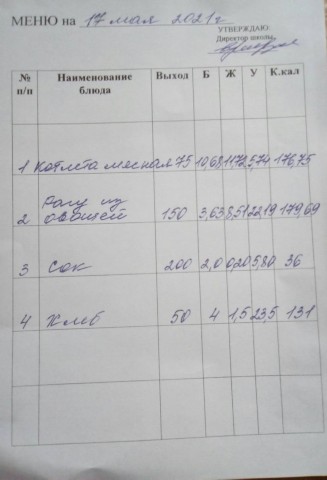 МЕНЮ на 17 мая 2021г
УТВЕРЖДАЮ:
Директор школы
№ п/п Наименование блюда Выход Б Ж У К.кал
1 Котлета мясная 75 10,68 11,72 5,74 176,75
2 Рагу из овощей 150 3,63 8,51 22,19 179,69
3 Сок 200 2,0 0,20 5,80 36
4 Хлеб 50 4 1,5 23,5 131